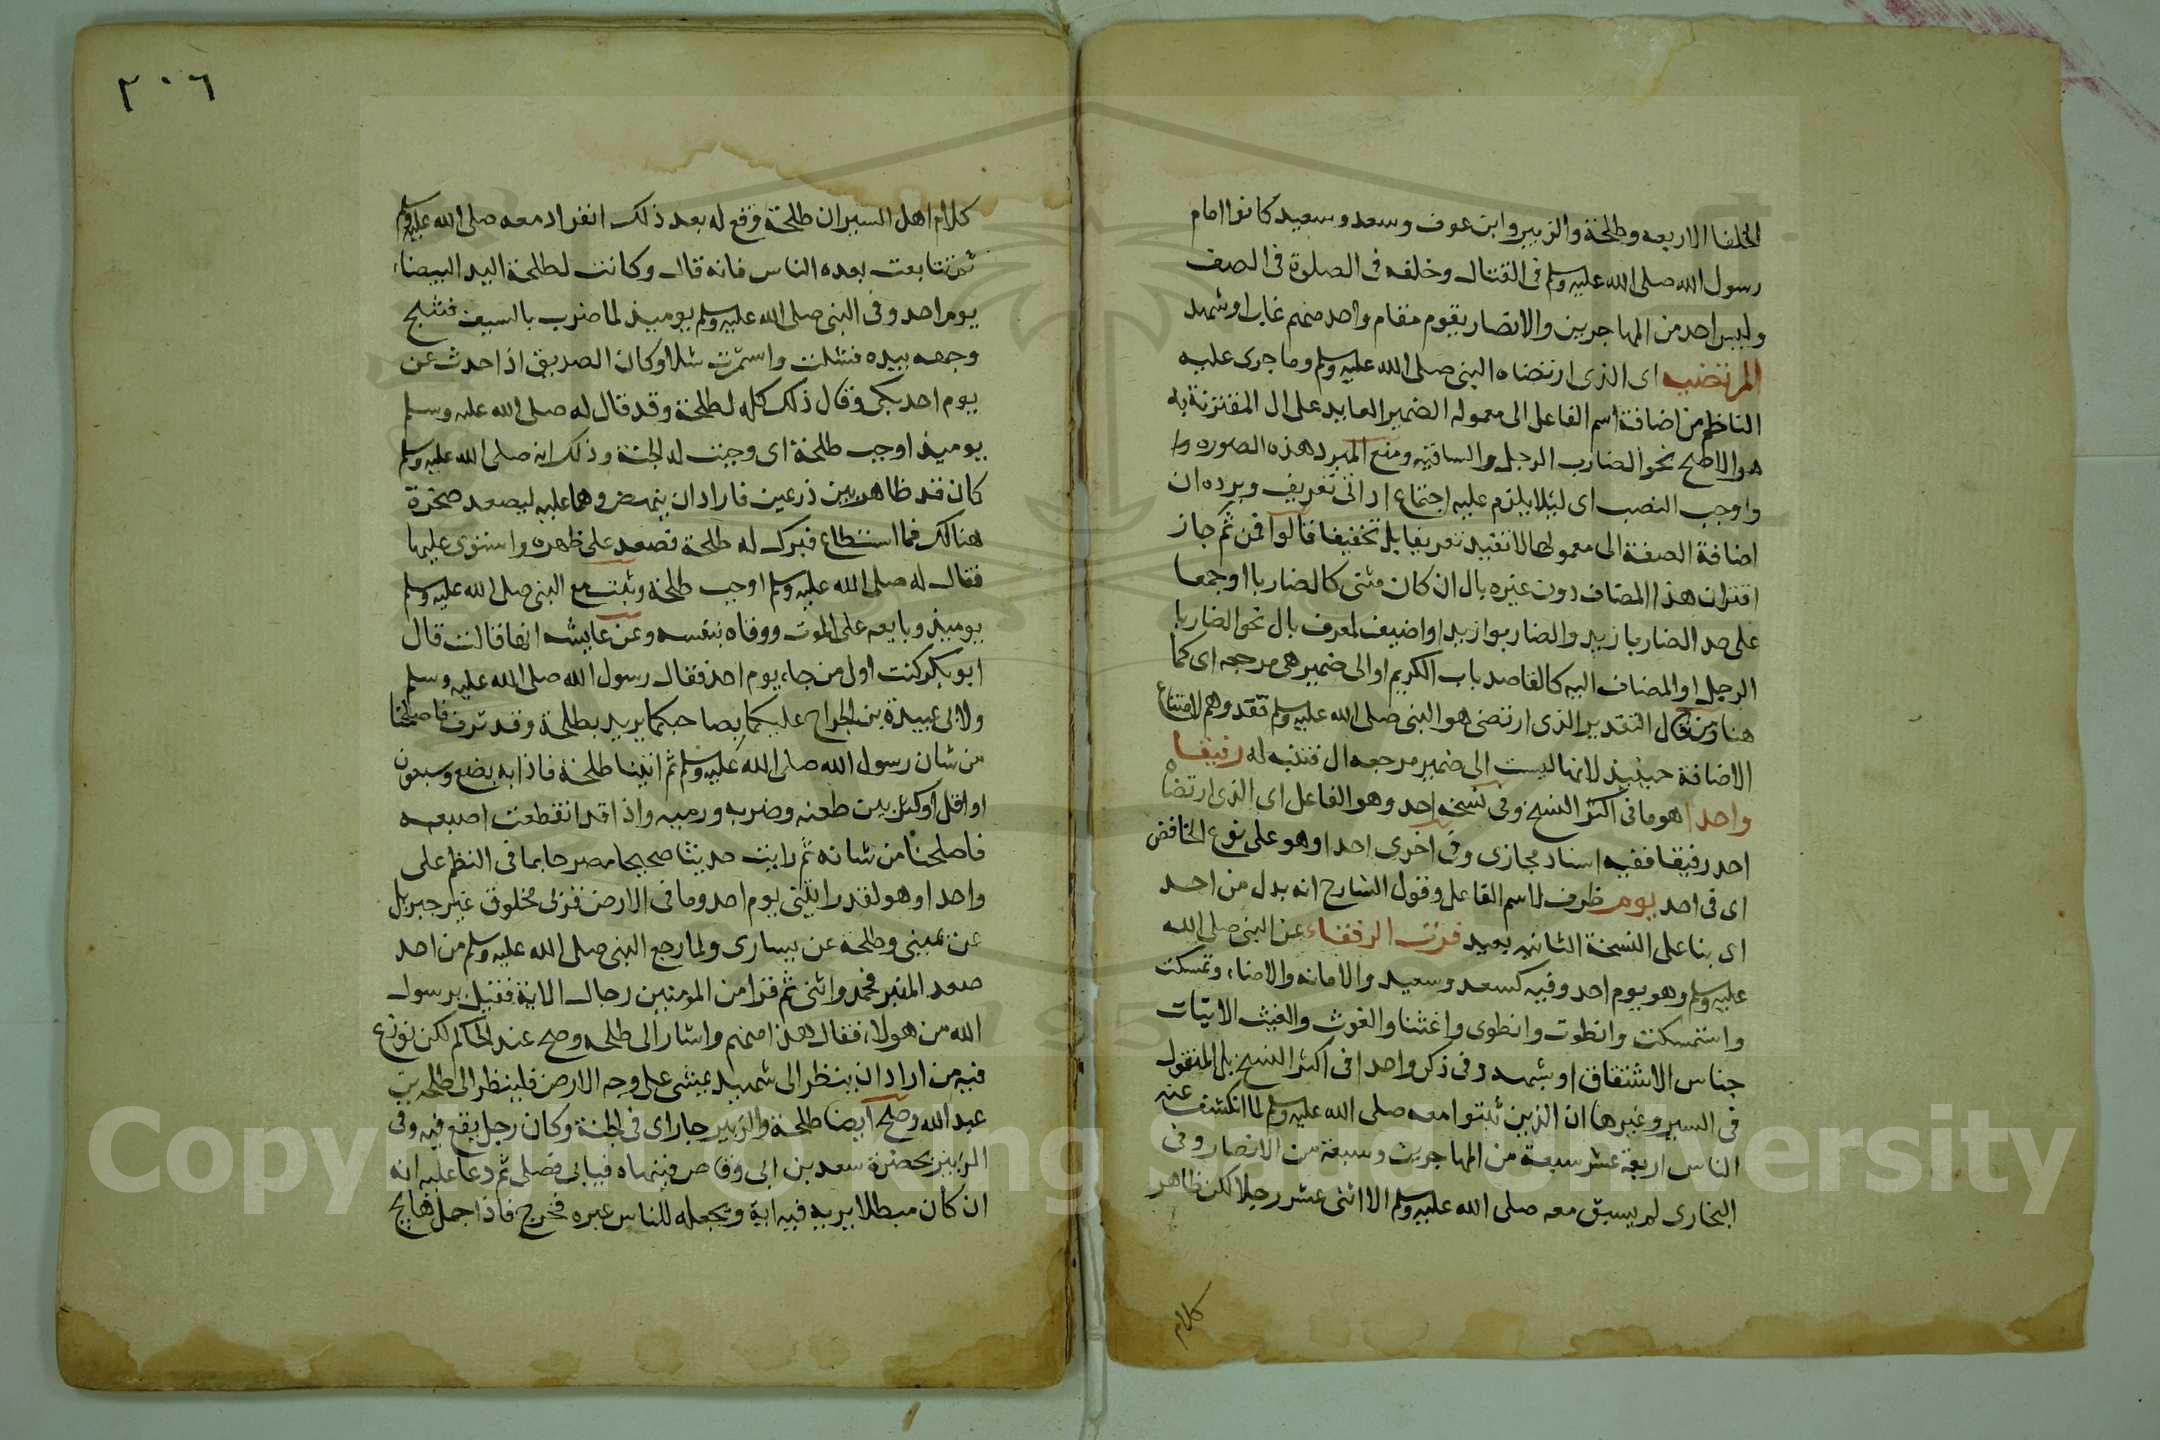 الخلفا الاربعه وطلحة والزبير وابن عوف وسعد وسعيد كانوا امام
رسول الله صلى الله عليه وسلم في القتال وخلفه في الصلوة في الصف
وليس احد من المهاجرين والانصار يقوم مقام واحد منهم غاب او شهد
المرتضيه اى الذى ارتضاه النبى صلى الله عليه وسلم وما جرى عليه
الناظم من اضافة اسم الفاعل الى معموله الضمير العايد على ال المقترنة به
هو الاصح نحو الضارب الرجل والساقيه ومنع المبرد هذه الصوره
واوجب النصب اى ليلا يلزم عليه اجتماع اداتى تعريف ويرده ان
اضافة الصفة الى معمولها لا تفيد تعريفا بل تخفيفا قالوا فمن ثم جاز
اقتران هذا المضاف دون غيره بال ان كان مثنى كالضاربا او جمعا
على حد الضاربا زيد والضاربوا زيد او اضيف لمعرف بال نحو الضاربا
الرجل او المضاف اليه كالقاصد باب الكريم او الى ضمير هى مرجعه اى كما
هنا ومن قال التقدير الذى ارتضى هو النبى صلى الله عليه وسلم فقد وهم لامتناع
الاضافة حينيذ لانها ليست الى ضمير مرجعه ال فتنبه له رفيقا
واحدا هو ما فى اكثر النسخ وفى نسخه احد وهو الفاعل اى الذى ارتضاه
احد رفيقا ففيه اسناد مجازى وفى اخرى احدا وهو على نزع الخافض
اى فى احد يوم ظرف لاسم الفاعل وقول الشارح انه بدل من احد
اى بنا على النسخة الثانيه بعيد فرت الرفقاء عن النبى صلى الله
عليه وسلم وهو يوم احد وفيه كسعد وسعيد والامانه والامناء وتمسكت
واستمسكت وانطوت وانطوى واغثنا والغوث والغيث الاتيات
جناس الاشتقاق او شبهه وفى ذكر واحدا فى اكثر النسخ بل المنقول
فى السير وغيرها ان الذين ثبتوا معه صلى الله عليه وسلم لما انكشف عنه
الناس اربعة عشر سبعة من المهاجرين وسبعة من الانصار وفى
البخارى لم يبق معه صلى الله عليه وسلم الا اثنى عشر رجلا لكن ظاهر
كلام
٢٠٦
كلام اهل السير ان طلحة وقع له بعد ذلك انفراد معه صلى الله عليه وسلم
ثم تتابعت بعده الناس فانه قال وكانت لطلحة اليد البيضاء
يوم احد وقى النبى صلى الله عليه وسلم يوميذ لما ضرب بالسيف فشج
وجهه بيده فشلت واستمرت شلا وكان الصديق اذا حدث عن
يوم احد بكى وقال ذلك كله لطلحة وقد قال له صلى الله عليه وسلم
يوميذ اوجب طلحة اى وجبت له الجنة وذلك انه صلى الله عليه وسلم
كان قد ظاهر بين درعين فاراد ان ينهض وهما عليه ليصعد صخرة
هنالك فما استطاع فبرك له طلحة فصعد على ظهره واستوى عليها
فقال له صلى الله عليه وسلم اوجب طلحة وثبت مع النبى صلى الله عليه وسلم
يوميذ وبايعه على الموت ووقاه بنفسه وعن عايشه انها قالت قال
ابو بكر كنت اول من جاء يوم احد فقال رسول الله صلى الله عليه وسلم
ولابى عبيدة بن الجراح عليكما بصاحبكما يريد بطلحة وقد نزف فاصلحنا
من شان رسول الله صلى الله عليه وسلم ثم اتينا طلحة فاذا به بضع وسبعون
او اقل او اكثر بين طعنه وضربه ورميه واذا قد انقطعت اصبعه
فاصلحنا من شانه ثم رايت حديثا صحيحا مصرحا بما فى النظم على
واحدا وهو لقد رايتنى يوم احد وما فى الارض قربى مخلوق غير جبريل
عن يمينى وطلحة عن يسارى ولما رجع النبى صلى الله عليه وسلم من احد
صعد المنبر فحمد واثنى ثم قرا من المومنين رجال الاية فقيل يرسول
الله من هولاء فقال هذا منهم واشار الى طلحه وصح عند الحاكم لكن نوزع
فيه من اراد ان ينظر الى شهيد يمشى على وجه الارض فلينظر الى طلحه بن
عبد الله وصح ايضا طلحة والزبير جاراى فى الجنة وكان رجل يقع فيه وفى
الزبير بحضرة سعد بن ابى وقاص فينهاه فيابى فصلى ثم دعا عليه انه
ان كان مبطلا يريه فيه اية ويجعله للناس عبره فخرج فاذا جمل هايج
Copyright © King Saud University